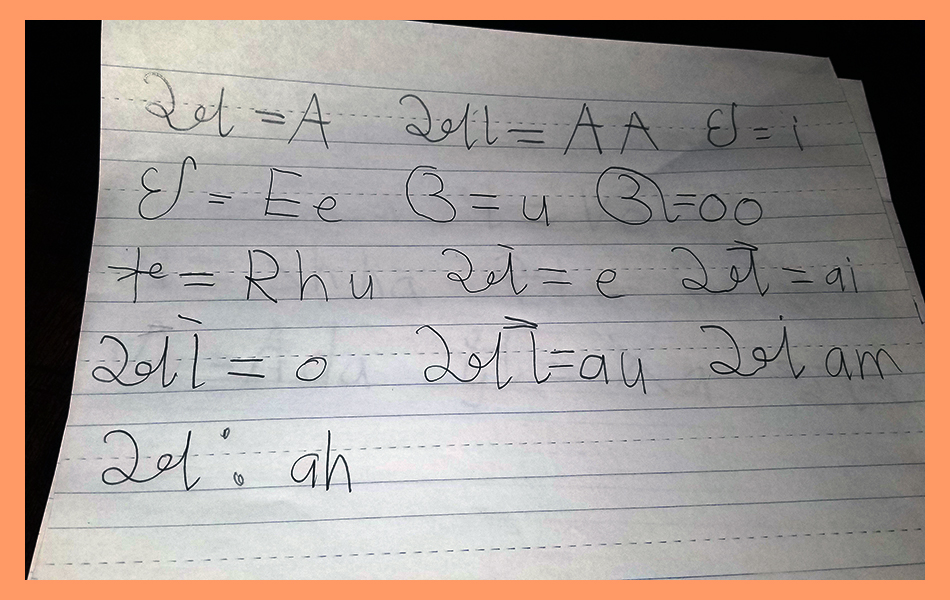 અ = A આ = AA ઇ = i
ઈ = Ee ઉ = u ઊ = oo
ઋ = Rhu એ = e ઐ = ai
ઓ = o ઔ = au અં am
અઃ ah